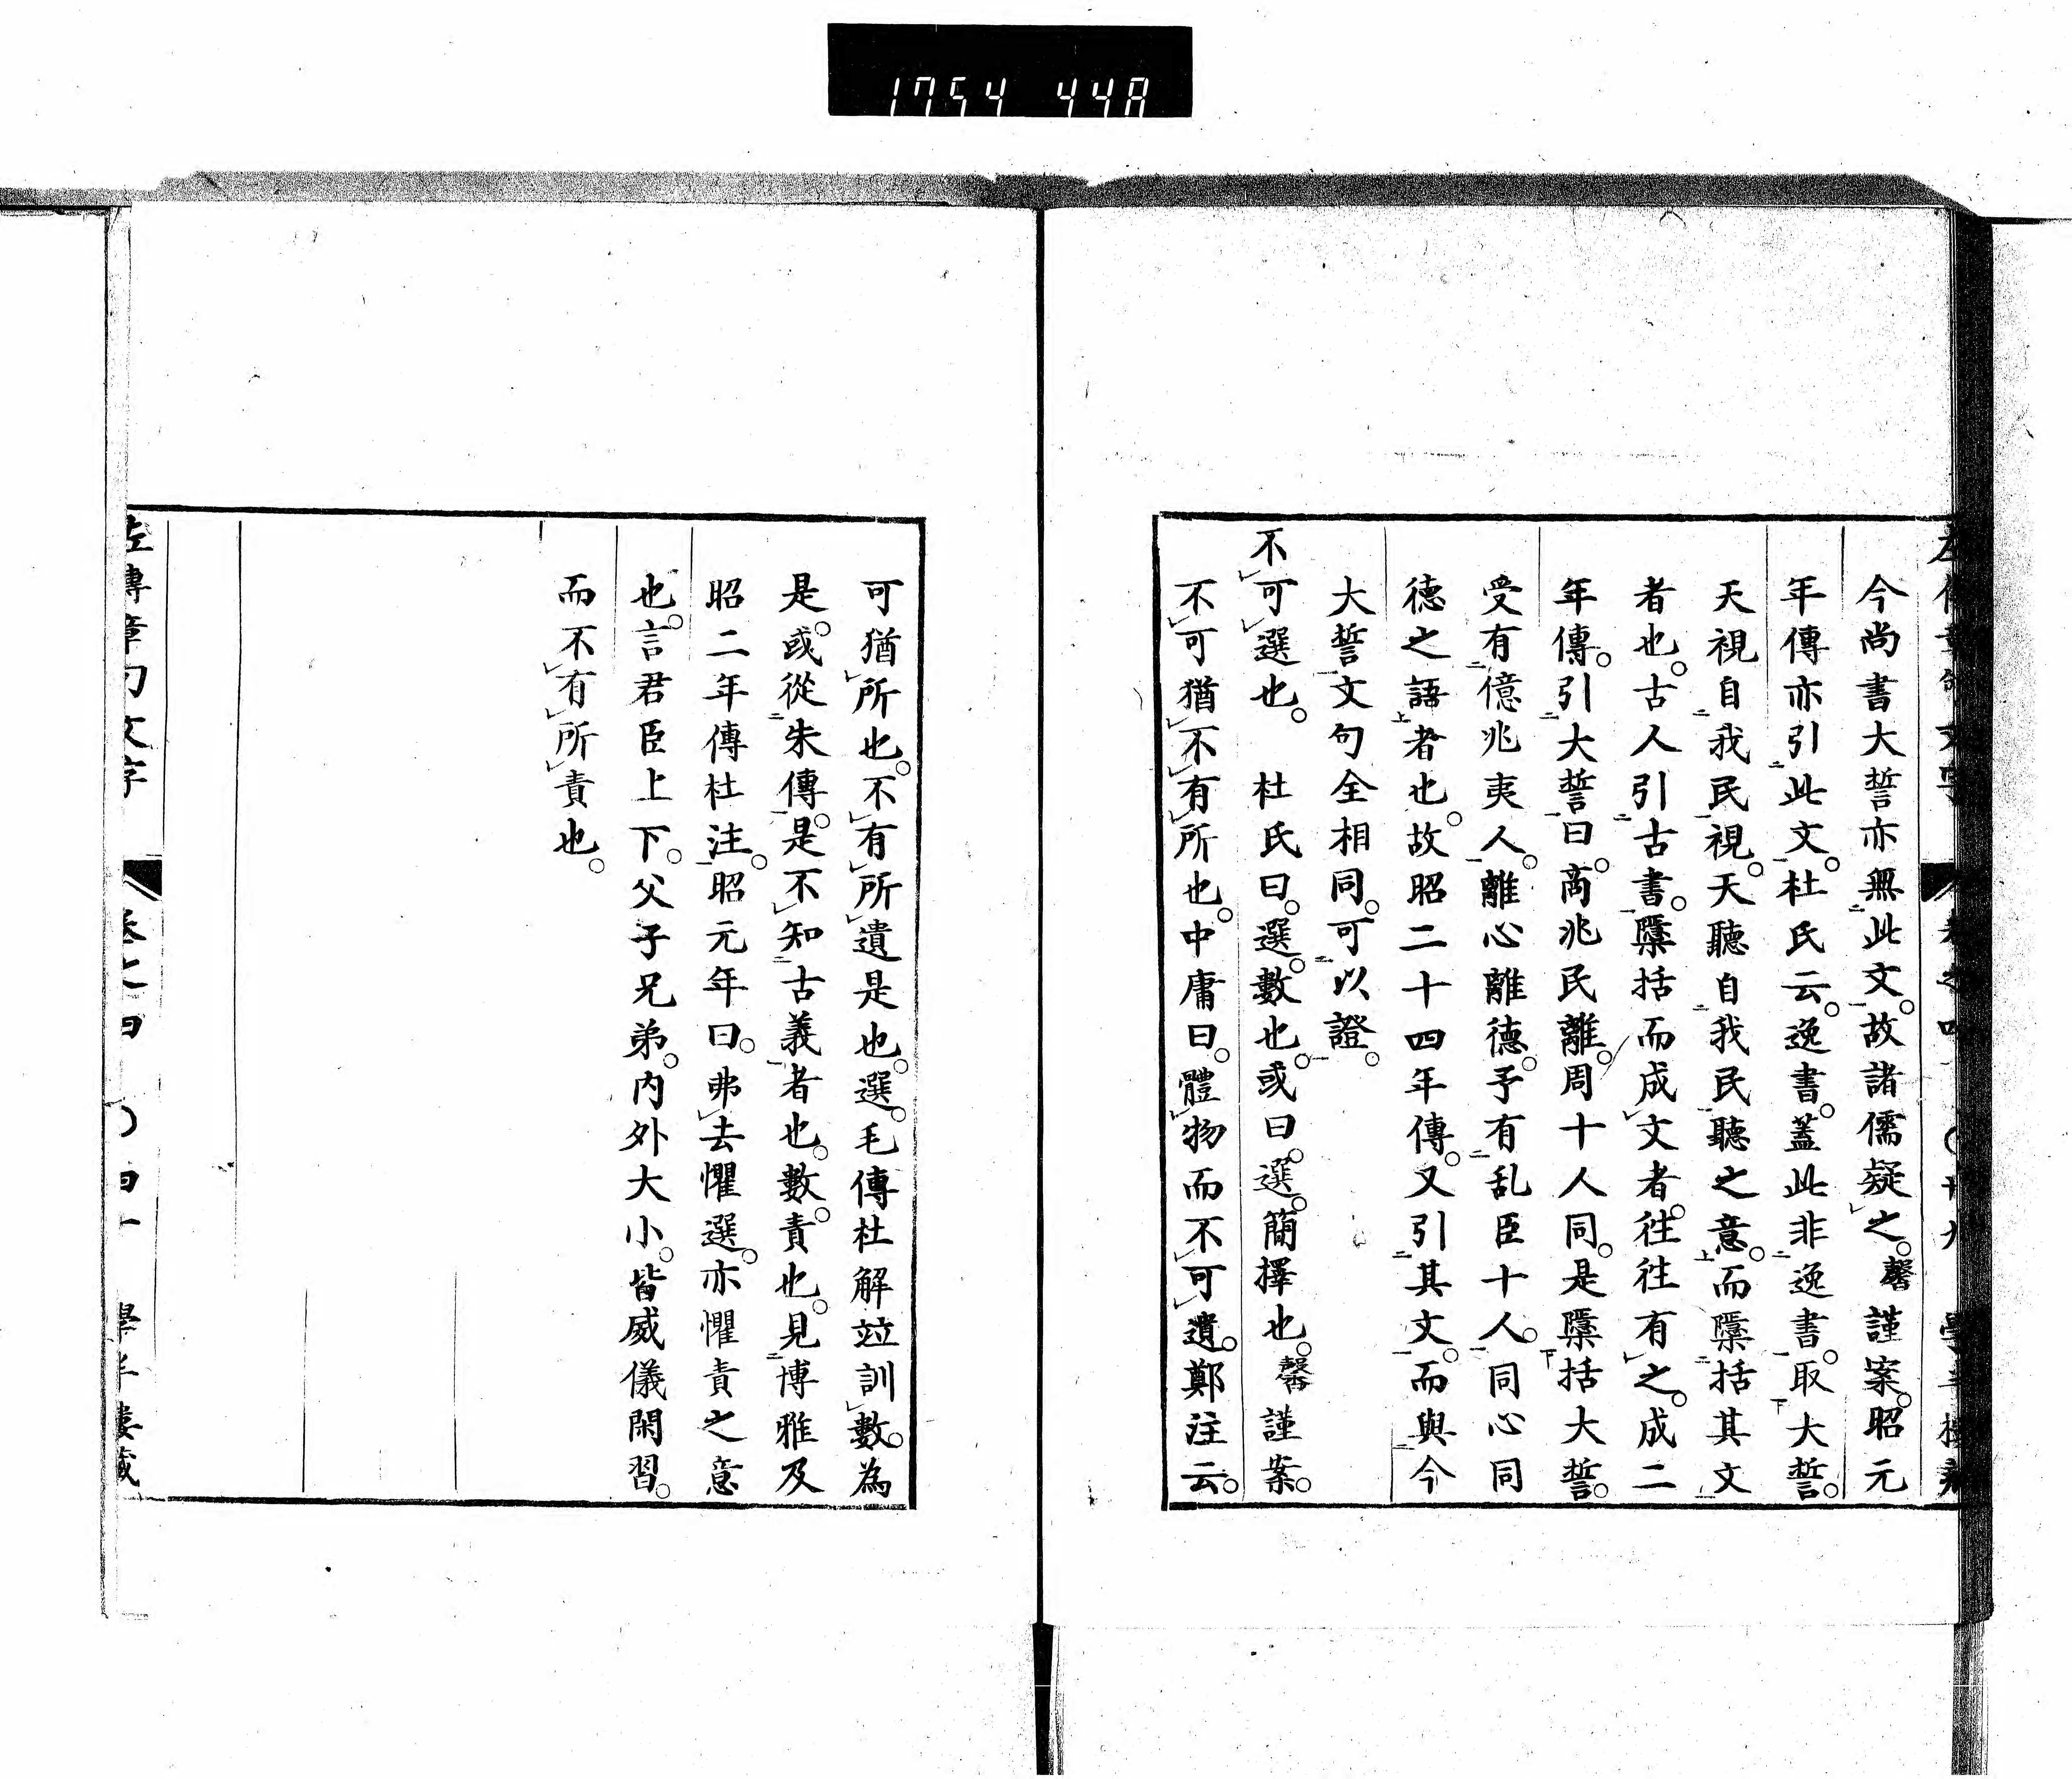 1754 44A
今尚書大誓亦無二此文一。故諸儒疑レ之。馨謹案。昭元
年傳亦引二此文一。杜氏云。逸書。蓋此非二逸書一。取下大誓。
天視自二我民一視。天聽自二我民一聽之意上。而檃二括其文一
者也。古人引二古書一。檃括而成レ文者。往往有レ之。成二
年傳。引二大誓一曰。商兆民離。周十人同。是檃下括大誓。
受有二億兆夷人一。離心離德。予有二乱臣十人一。同心同
德之語上者也。故昭二十四年傳。又引二其文一。而與二今
大誓一文句全相同。可二以證一。
不レ可レ選也。　杜氏曰。選。數也。或曰。選。簡擇也。馨謹案。
不レ可猶レ不レ有レ所也。中庸曰。體レ物而不レ可レ遺。鄭注云。
可猶レ所也。不レ有レ所レ遺是也。選。毛傳杜解竝訓レ數。為
是。或從二朱傳一。是不レ知二古義一者也。數。責也。見二博雅及
昭二年傳杜注一。昭元年曰。弗レ去懼選。亦懼責之意
也。言君臣上下。父子兄弟。内外大小。皆威儀閑習。
而不レ有レ所レ責也。
左傳章句文字　卷之四　〇四十　學半樓藏